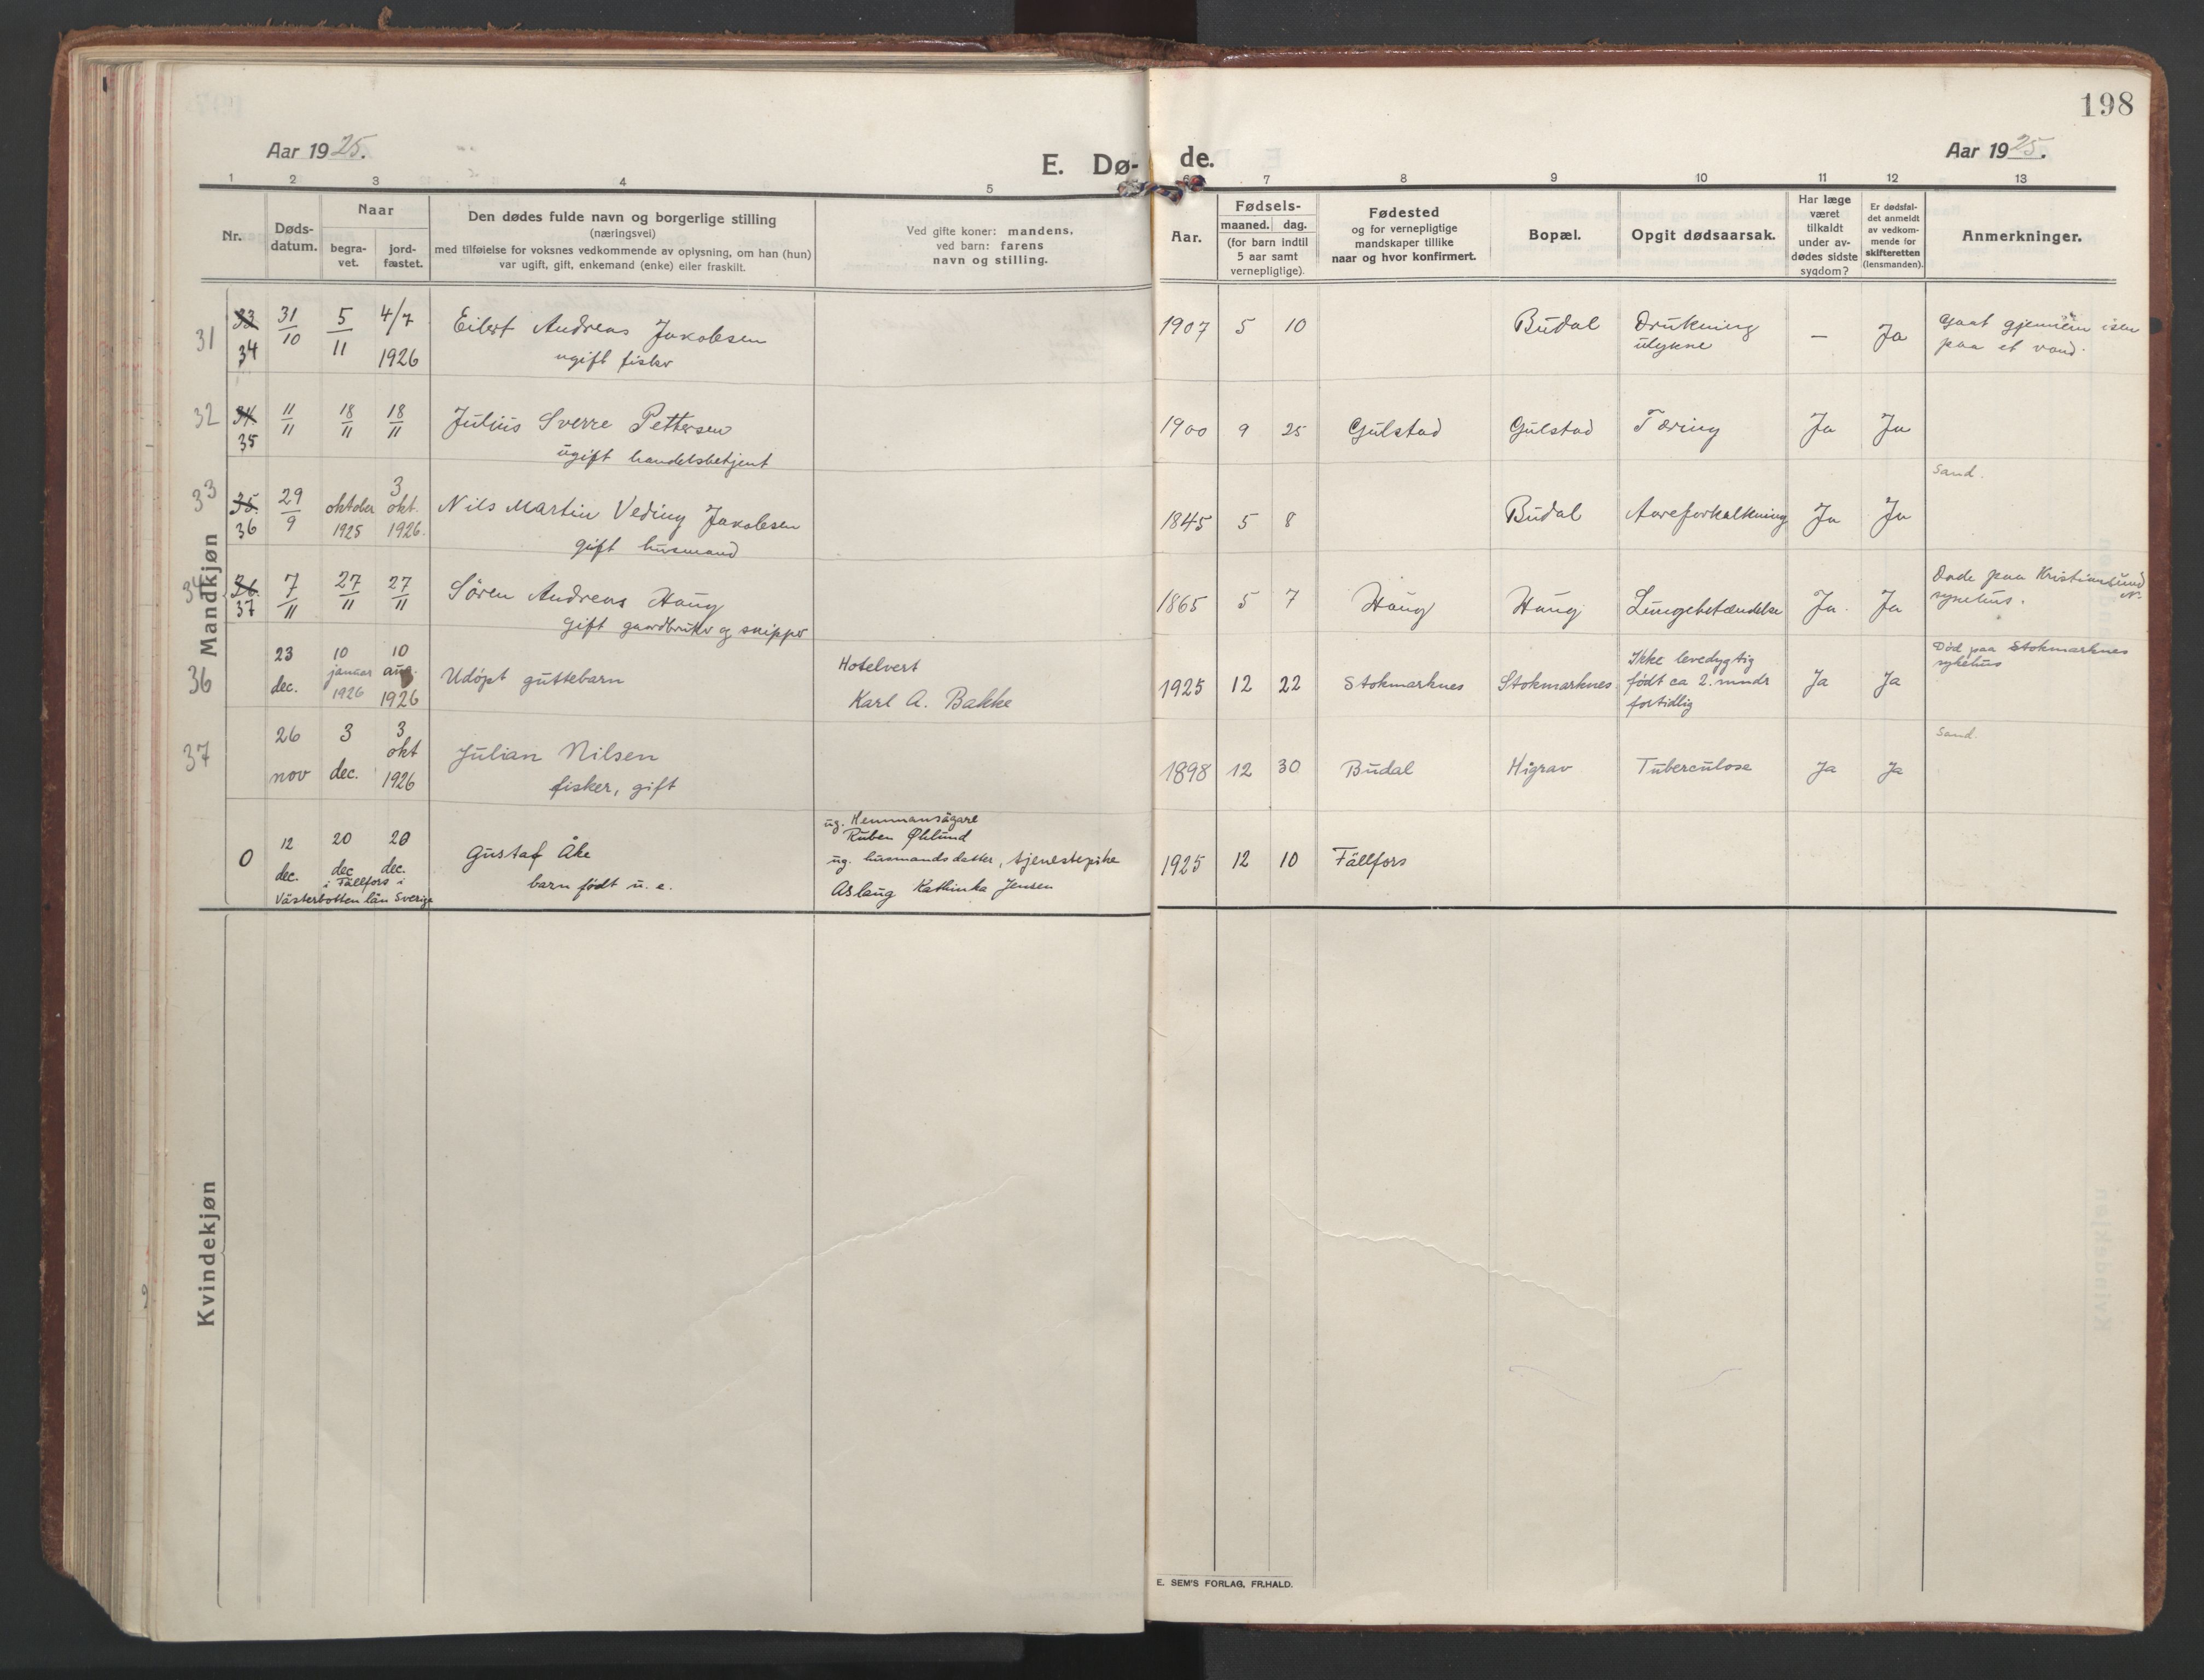 198
Aar 1925.
E. Dø- de.
Aar 1925.
1 2 3 4 5 6 7 8 9 10 11 12 13
Nr.
Døds-
datum.
Naar
begra-
vet.
jord-
fæstet.
Den dødes fulde navn og borgerlige stilling
(næringsvei)
med tilføielse for voksnes vedkommende av oplysning, om han (hun)
var ugift, gift, enkemand (enke) eller fraskilt.
Ved gifte koner: mandens.
ved barn: farens
navn og stilling.
Aar.
Fødsels-
maaned. dag.
(for barn indtil
5 aar samt
vernepligtige).
Fødested
og for vernepligtige
mandskaper tillike
naar og hvor konfirmert.
Bopæl.
Opgit dødsaarsak.
Har læge
været
tilkaldt
under av-
dødes sidste
sygdom?
Er dødsfal-
det anmeldt
av vedkom-
mende for
skifteretten
(lensmanden).
Anmerkninger.
Mandkjøn
31 33 31/10 5/11 4/7 Eilert Andreas Jakobsen 1907 5 10 Budal Drukning — Ja Gaat gjennem isen
34 1926 ugift fisker ulykke paa et vand.
32 34 11/11 18/11 18/11 Julius Sverre Pettersen 1900 9 25 Gulstad Gulstad Tæring Ja Ja
35 ugift handelsbetjent
Sand.
33 35. 29/9 oktober 3 okt. Nils Martin Veding Jakobsen 1845 5 8 Budal Aareforkalkning Ja Ja
36 1925 1926. gift husmand
34 36. 7/11 27/11 27/11 Søren Andreas Haug 1865 5 7 Haug Haug Lungebetændelse Ja. Ja Døde paa Kristiansund N.
37 gift gaardbruker og skipper sykehus.
36 23 10 10 Hotelvert Ikke levedygtig Død paa Stokmarknes
dec. januar aug. Udøpt guttebarn Karl A. Bakke 1925 12 22 Stokmarknes Stokmarknes født ca 2. mndr Ja Ja sykehus
1926 1926 fortidlig
Sand.
37 26 3 3 okt Julian Nilsen 1898 12 30 Budal Higrav Tuberculose Ja Ja
nov dec. 1926 fisker, gift
ug. Hemmansägare
Ruben Øhlund
0 12 20 20 Gustaf Åke ug. husmandsdatter, tjenestepike 1925 12 10 Fällfors
dec. dec dec. barn født u. e. Aslaug Kathinka Jensen
i Fällfors i
Västerbotten län Sverige
Kvindekjøn
E. SEM'S FORLAG, FR.HALD.